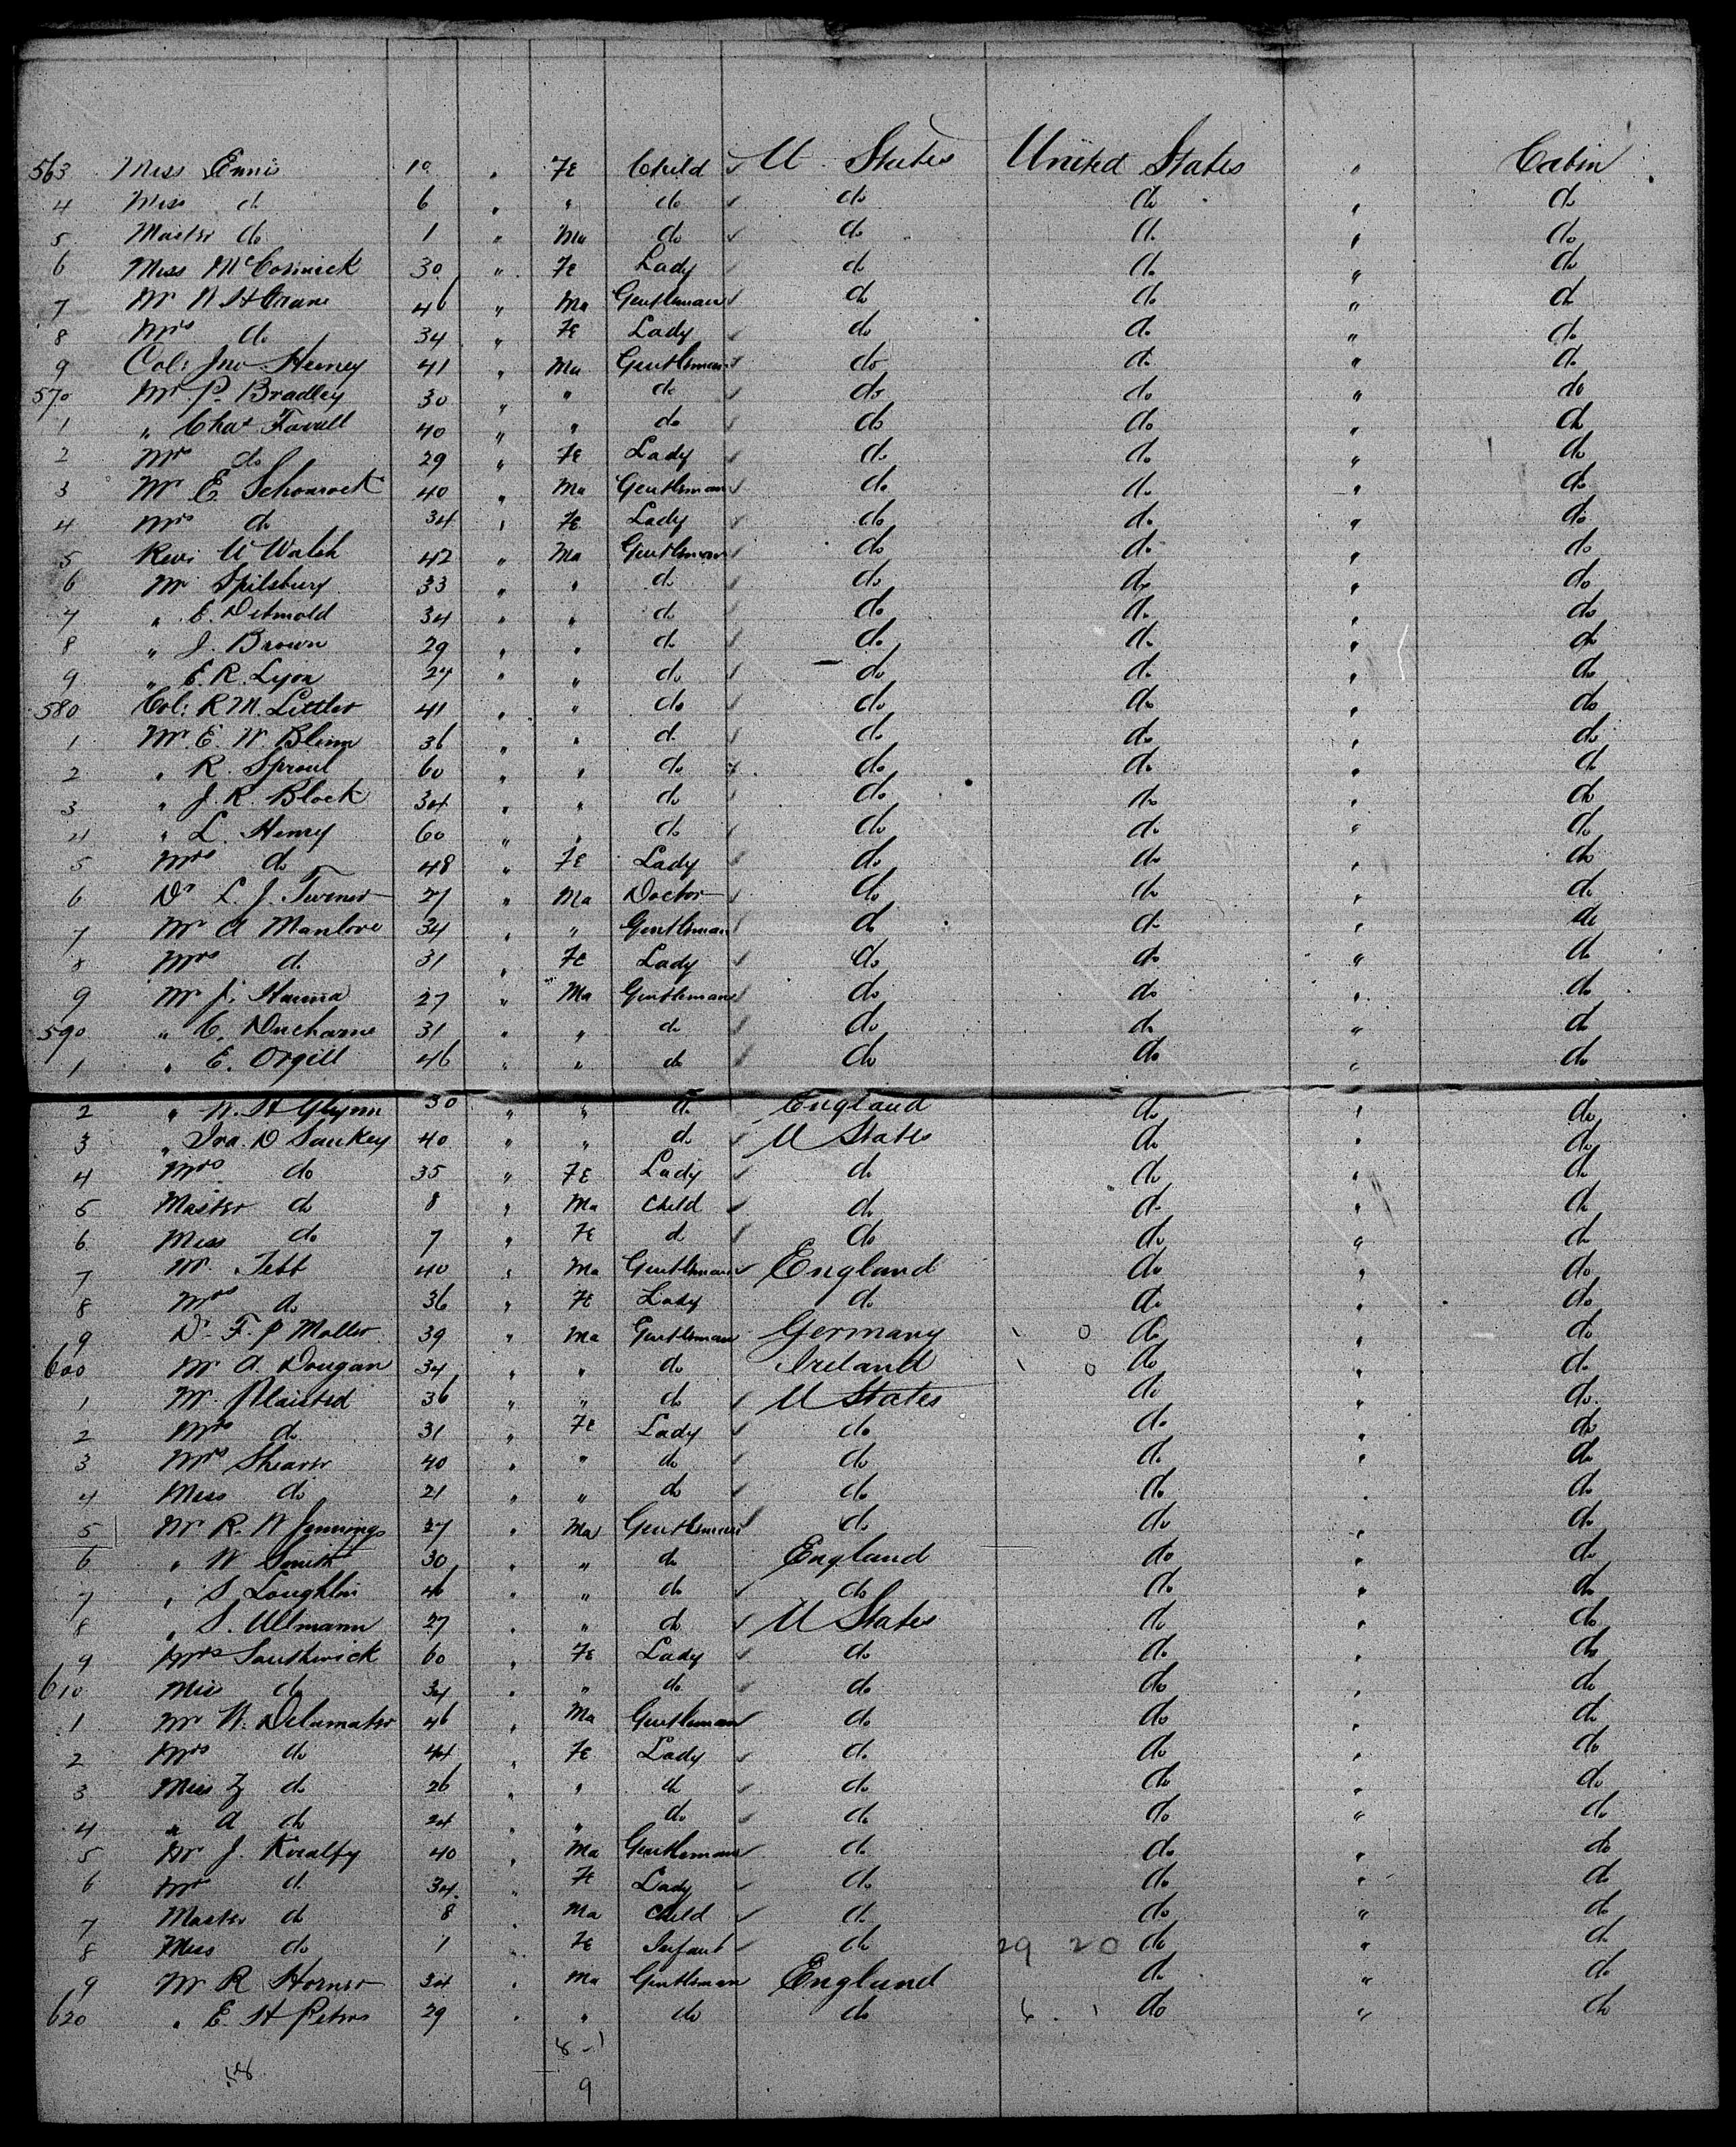 563 Miss Ennis 10 " Fe Child ✓ U. States United States " Cabin
4 Miss do 6 " " do ✓ do do " do
5 Master do 1 " Ma do ✓ do do " do
6 Miss McCormick 30 " Fe Lady ✓ do do " do
7 Mr N H Crane 46 " Ma Gentleman ✓ do do " do
8 Mrs do 34 " Fe Lady ✓ do do " do
9 Col: Jno 41 " Ma Gentleman ✓ do do " do
570 Mr P. Bradley 30 " " do ✓ do do " do
1 " Chas 40 " " do ✓ do do " do
2 Mrs do 29 " Fe Lady ✓ do do " do
3 Mr E. Schonrock 40 " Ma Gentleman ✓ do do " do
4 Mrs do 34 " Fe Lady ✓ do do " do
5 Rev: W Walsh 42 " Ma Gentleman ✓ do do " do
6 Mr Spilsbury 33 " " do ✓ do do " do
7 " E. Detmold 34 " " do ✓ do do " do
8 " J. Brown 29 " " do ✓ do do " do
9 " E. R. Lyon 24 " " do ✓ do do " do
580 Col: R M. Littler 41 " " do ✓ do do " do
1 Mr E. W. Blinn 36 " " do ✓ do do " do
2 " R. Sproul 60 " " do ✓ do do " do
3 " J. R. Block 34 " " do ✓ do do " do
4 " L. Henry 60 " " do ✓ do do " do
5 Mrs do 48 " Fe Lady ✓ do do " do
6 Dr L. J. Turner 27 " Ma Doctor ✓ do do " do
7 Mr A Manlove 34 " " Gentleman ✓ do do " do
8 Mrs do 31 " Fe Lady ✓ do do " do
9 Mr J. Hanna 27 " Ma Gentleman ✓ do do " do
590 " C. Ducharme 31 " " do ✓ do do " do
1 " E. Orgill 46 " " do ✓ do do " do
2 " W. H Glynn 30 " " do England do " do
3 " Ira. D Sankey 40 " " do ✓ U States do " do
4 Mrs do 35 " Fe Lady ✓ do do " do
5 Master do 8 " Ma Child ✓ do do " do
6 Miss do 7 " Fe do ✓ do do " do
7 Mr. Tebb 40 " Ma Gentleman ✓ England do " do
8 Mrs do 36 " Fe Lady do do " do
9 Dr. F. P Moller 39 " Ma Gentleman Germany 0 do " do
600 Mr A. Dougan 34 " " do Ireland 0 do " do
1 Mr. Plaisted 36 " " do ✓ U States do " do
2 Mrs do 31 " Fe Lady ✓ do do " do
3 Mrs Shearer 40 " " do ✓ do do " do
4 Miss do 21 " " do ✓ do do " do
5 Mr R. W Jennings 27 " Ma Gentleman ✓ do do " do
6 " W Smith 30 " " do England do " do
7 " S. Loughlin 46 " " do ✓ do do " do
8 " S. Ullmann 27 " " do ✓ U States do " do
9 Mrs Southwick 60 " Fe Lady ✓ do do " do
610 Miss do 34 " " do ✓ do do " do
1 Mr W. Delamater 46 " Ma Gentleman do do " do
2 Mrs do 44 " Fe Lady ✓ do do " do
3 Miss Z do 26 " " do ✓ do do " do
4 " A do 24 " " do ✓ do do " do
5 Mr J. Kiralfy 40 " Ma Gentleman do do " do
6 Mrs do 34 " Fe Lady ✓ do do " do
7 Master do 8 " Ma Child ✓ do do " do
8 Miss do 1 " Fe Infant ✓ do 29 20 do " do
9 Mr R Horner 34 " Ma Gentleman England do " do
620 " E H Peters 29 " " do do 6 1 do " do
8-1
9